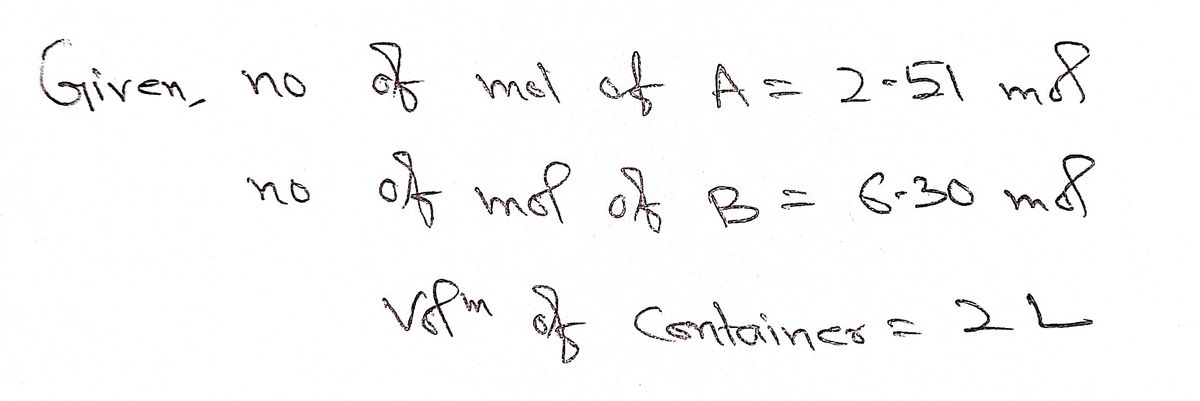 Given, no of mol of A = 2.51 mol
no of mol of B = 6.30 mol
volm of Container = 2 L